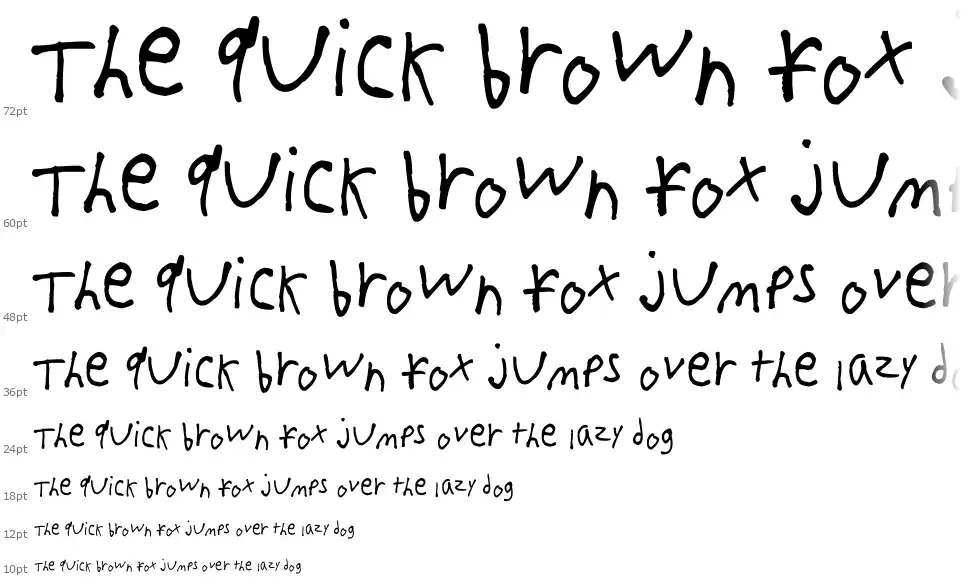 The quick brown fox
72pt
The quick brown fox jum
60pt
The quick brown fox jumps over
48pt
The quick brown fox jumps over the lazy d
36pt
The quick brown fox jumps over the lazy dog
24pt
The quick brown fox jumps over the lazy dog
18pt
The quick brown fox jumps over the lazy dog
12pt
The quick brown fox jumps over the lazy dog
10pt